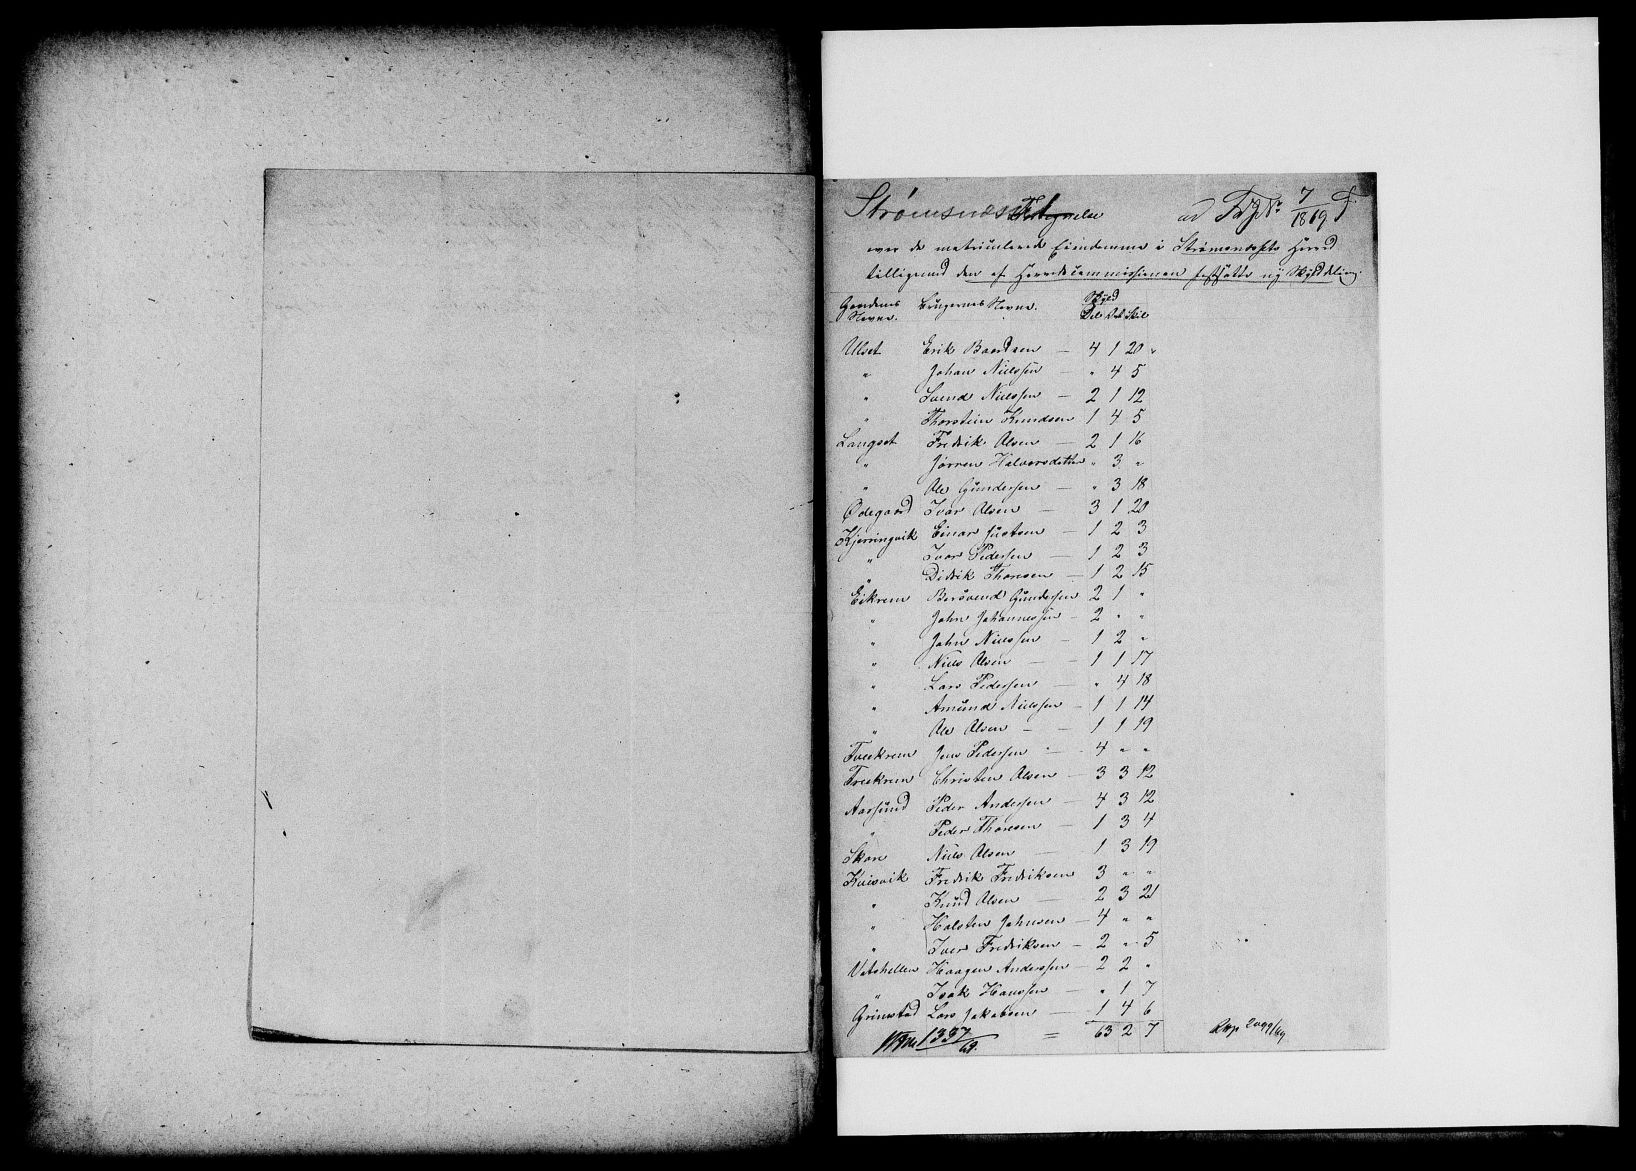 Strømsnæsset Fortegnelse ad Fr J No 7/1869 F.
over de matriculerede Eiendomme i Strømsnæssets Herred
tilligemed den af Herredscommissionen fastsatte ny Skylddeling.
Gaardenes Navne. Brugernes Navne. Skyld
Dlr Ort Skil
Ulset Erik Baardsen — 4 1 20 "
" Johan Nielssen — " 4 5
" Svend Nielssen — 2 1 12
" Thorstein Knudsen 1 4 5
Langset Fredrik Olsen — 2 1 16
" Jørren Halvorsdatter " 3 "
" Ole Gundersen — " 3 18
Ødegaard Ivar Olsen — 3 1 20
Kjerringvik Einar Justsen — 1 2 3
" Ivar Pedersen — 1 2 3
" Didrik Thoresen — 1 2 15
Eikrem Bersvend Gundersen 2 1 "
" John Johannessen — 2 " "
" John Nielssen — 1 2 "
" Niels Olsen — — 1 1 17
" Lars Pedersen — " 4 18
" Amund Nielssen — 1 1 14
" Ole Olsen — — 1 1 19
Tveekrem Jens Pedersen " — 4 " "
Treekrem Christen Olsen — 3 3 12
Aarsund Peder Andersen — 4 3 12
" Peder Thoresen — 1 3 4
Skon Niels Olsen — 1 3 19
Kvisvik Fredrik Fredriksen 3 " "
" Knud Olsen — 2 3 21
" Halsten Johnsen — 4 " "
" Iver Fredriksen — 2 " 5
Vatshellen Haagen Anderssen — 2 2 "
" Isak Hanssen — " 1 7
Grimstad Lars Jakobsen — 1 4 6
1337/69. = 63 2 7 Rvp 2099/69